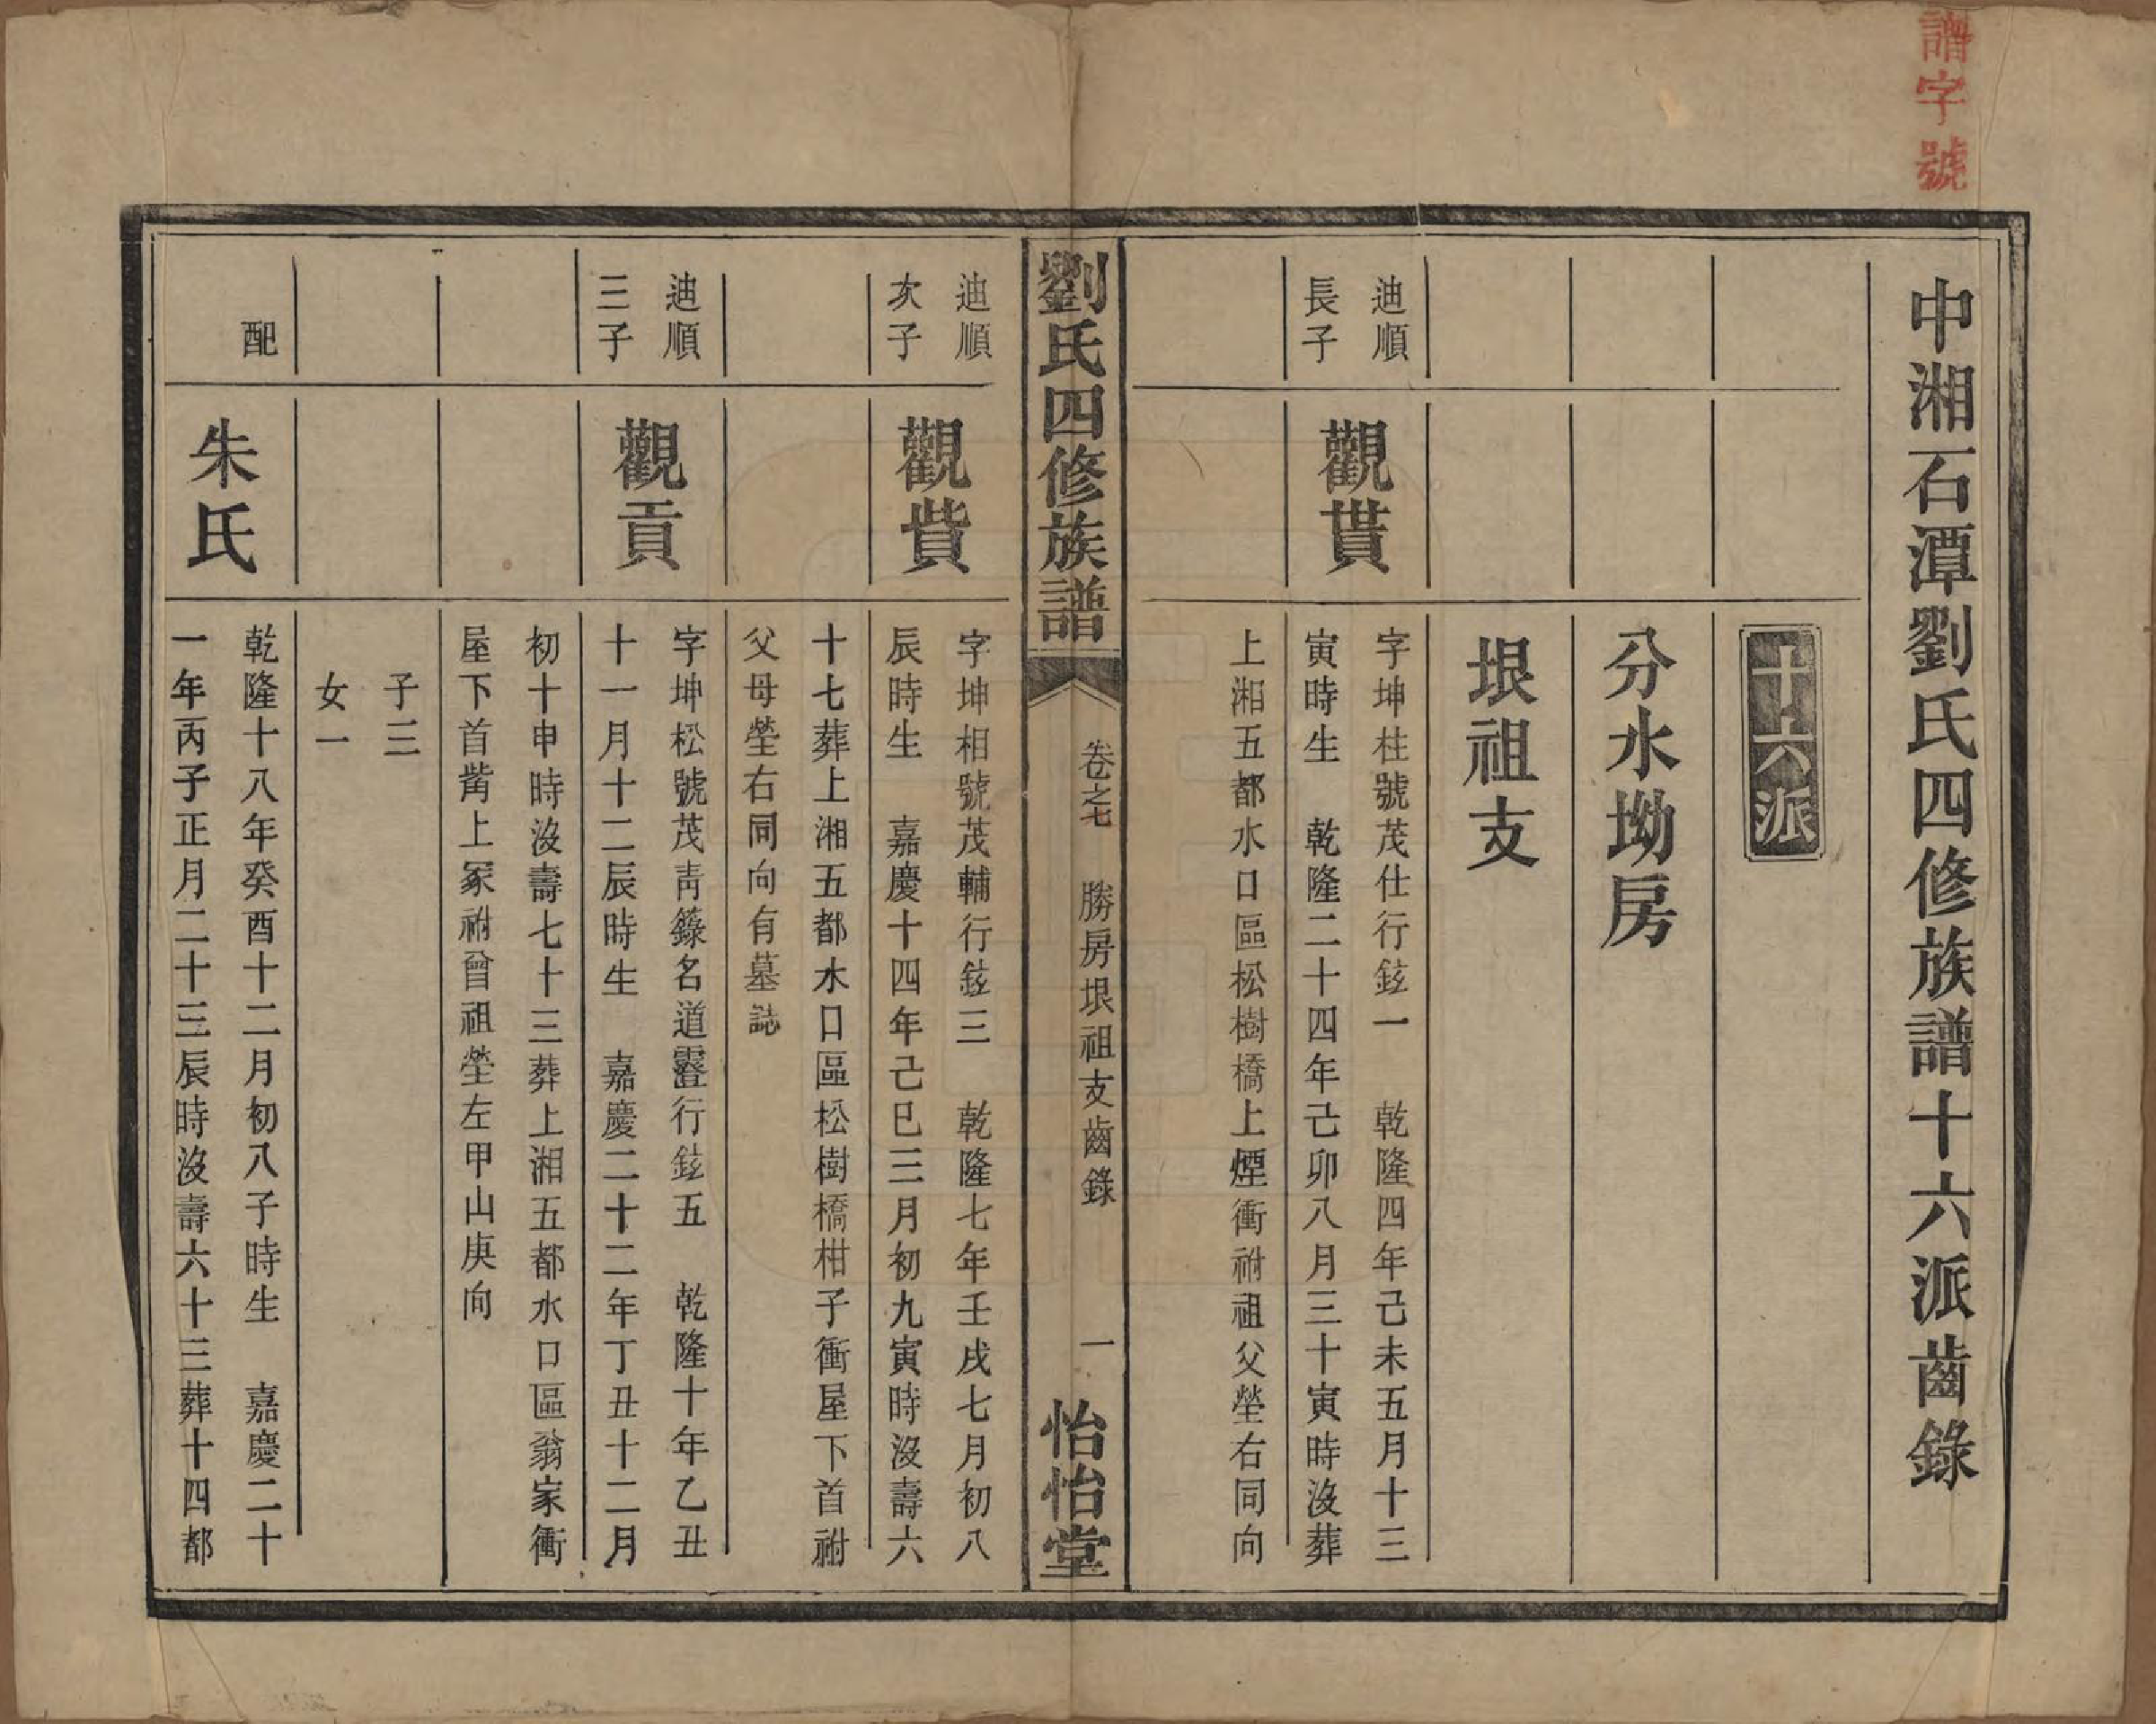 譜字號
中湘石潭劉氏四修族譜十六派齒錄
十六派
分水坳房
垠祖支
迪順
長子
觀貰
字坤柱號茂仕行鉉一　乾隆四年己未五月十三
寅時生　乾隆二十四年己卯八月三十寅時沒葬
上湘五都水口區松樹橋上煙衝祔祖父塋右同向
劉氏四修族譜
卷之七　勝房垠祖支齒錄　一
怡怡堂
迪順
次子
觀貲
字坤相號茂輔行鉉三　乾隆七年壬戌七月初八
辰時生　嘉慶十四年己巳三月初九寅時沒壽六
十七葬上湘五都水口區松樹橋柑子衝屋下首祔
父母塋右同向有墓誌
迪順
三子
觀貢
字坤松號茂靑籙名道靈行鉉五　乾隆十年乙丑
十一月十二辰時生　嘉慶二十二年丁丑十二月
初十申時沒壽七十三葬上湘五都水口區翁家衝
屋下首嘴上冢祔曾祖塋左甲山庚向
子三
女一
配
朱氏
乾隆十八年癸酉十二月初八子時生　嘉慶二十
一年丙子正月二十三辰時沒壽六十三葬十四都